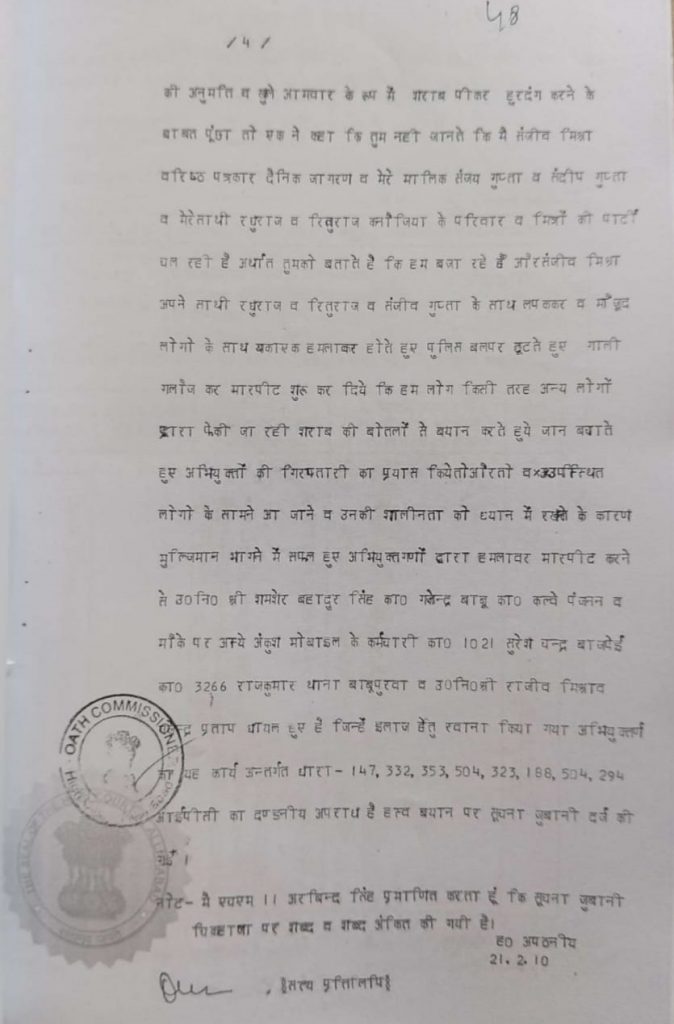 48
/4/
की अनुमति व खुले आमवार के रूप में शराब पीकर हुरदंग करने के
बाबत पूंछा तो एक ने कहा कि तुम नही जानते कि मै संजीव मिश्रा
वरिष्ठ पत्रकार दैनिक जागरण व मेरे मालिक संजय गुप्ता व संदीप गुप्ता
व मेरेसाथी रघुराज व रितुराज कनौजिया के परिवार व मित्रों की पार्टी
चल रही है अर्थात तुमको बताते है कि हम बजा रहे हैं औरसंजीव मिश्रा
अपने साथी रघुराज व रितुराज व संजीव गुप्ता के साथ लपककर व मौजूद
लोगो के साथ यकायक हमलाकर होते हुए पुलिस बलपर टूटते हुए गाली
गलौज कर मारपीट शुरू कर दिये कि हम लोग किसी तरह अन्य लोगों
द्वारा फेकी जा रही शराब की बोतलों से बयान करते हुये जान बचाते
हुए अभियुक्तों की गिरफ्तारी का प्रयास कियेतोऔरतो व उपस्थित
लोगो के सामने आ जाने व उनकी शालीनता को ध्यान में रखने के कारण
मुल्जिमान भागने में सफल हुए अभियुक्तगणों द्वारा हमलावर मारपीट करने
से उ०नि० श्री शमशेर बहादुर सिंह का० गजेन्द्र बाबू का० कल्वे पंजमन व
मौके पर आये अंकुश मोबाइल के कर्मचारी का० 1021 सुरेश चन्द्र बाजपेई
का० 3266 राजकुमार थाना बाबूपुरवा व उ०नि०श्री राजीव मिश्राव
प्रताप घायल हुए है जिन्हें इलाज हेतु रवाना किया गया अभियुक्तगण
यह कार्य अन्तर्गत धारा- 147, 332, 353, 504, 323, 188, 504, 294
आईपीसी का दण्डनीय अपराध है बयान पर सूचना जुबानी दर्ज की
गई ।
नोट- मै एचएम 11 अरबिन्द सिंह प्रमाणित करता हूं कि सूचना जुबानी
पर शब्द व शब्द अंकित की गयी है।
ह० अपठनीय
21.2.10
सत्य प्रतिलिपि
OATH COMMISSIONER